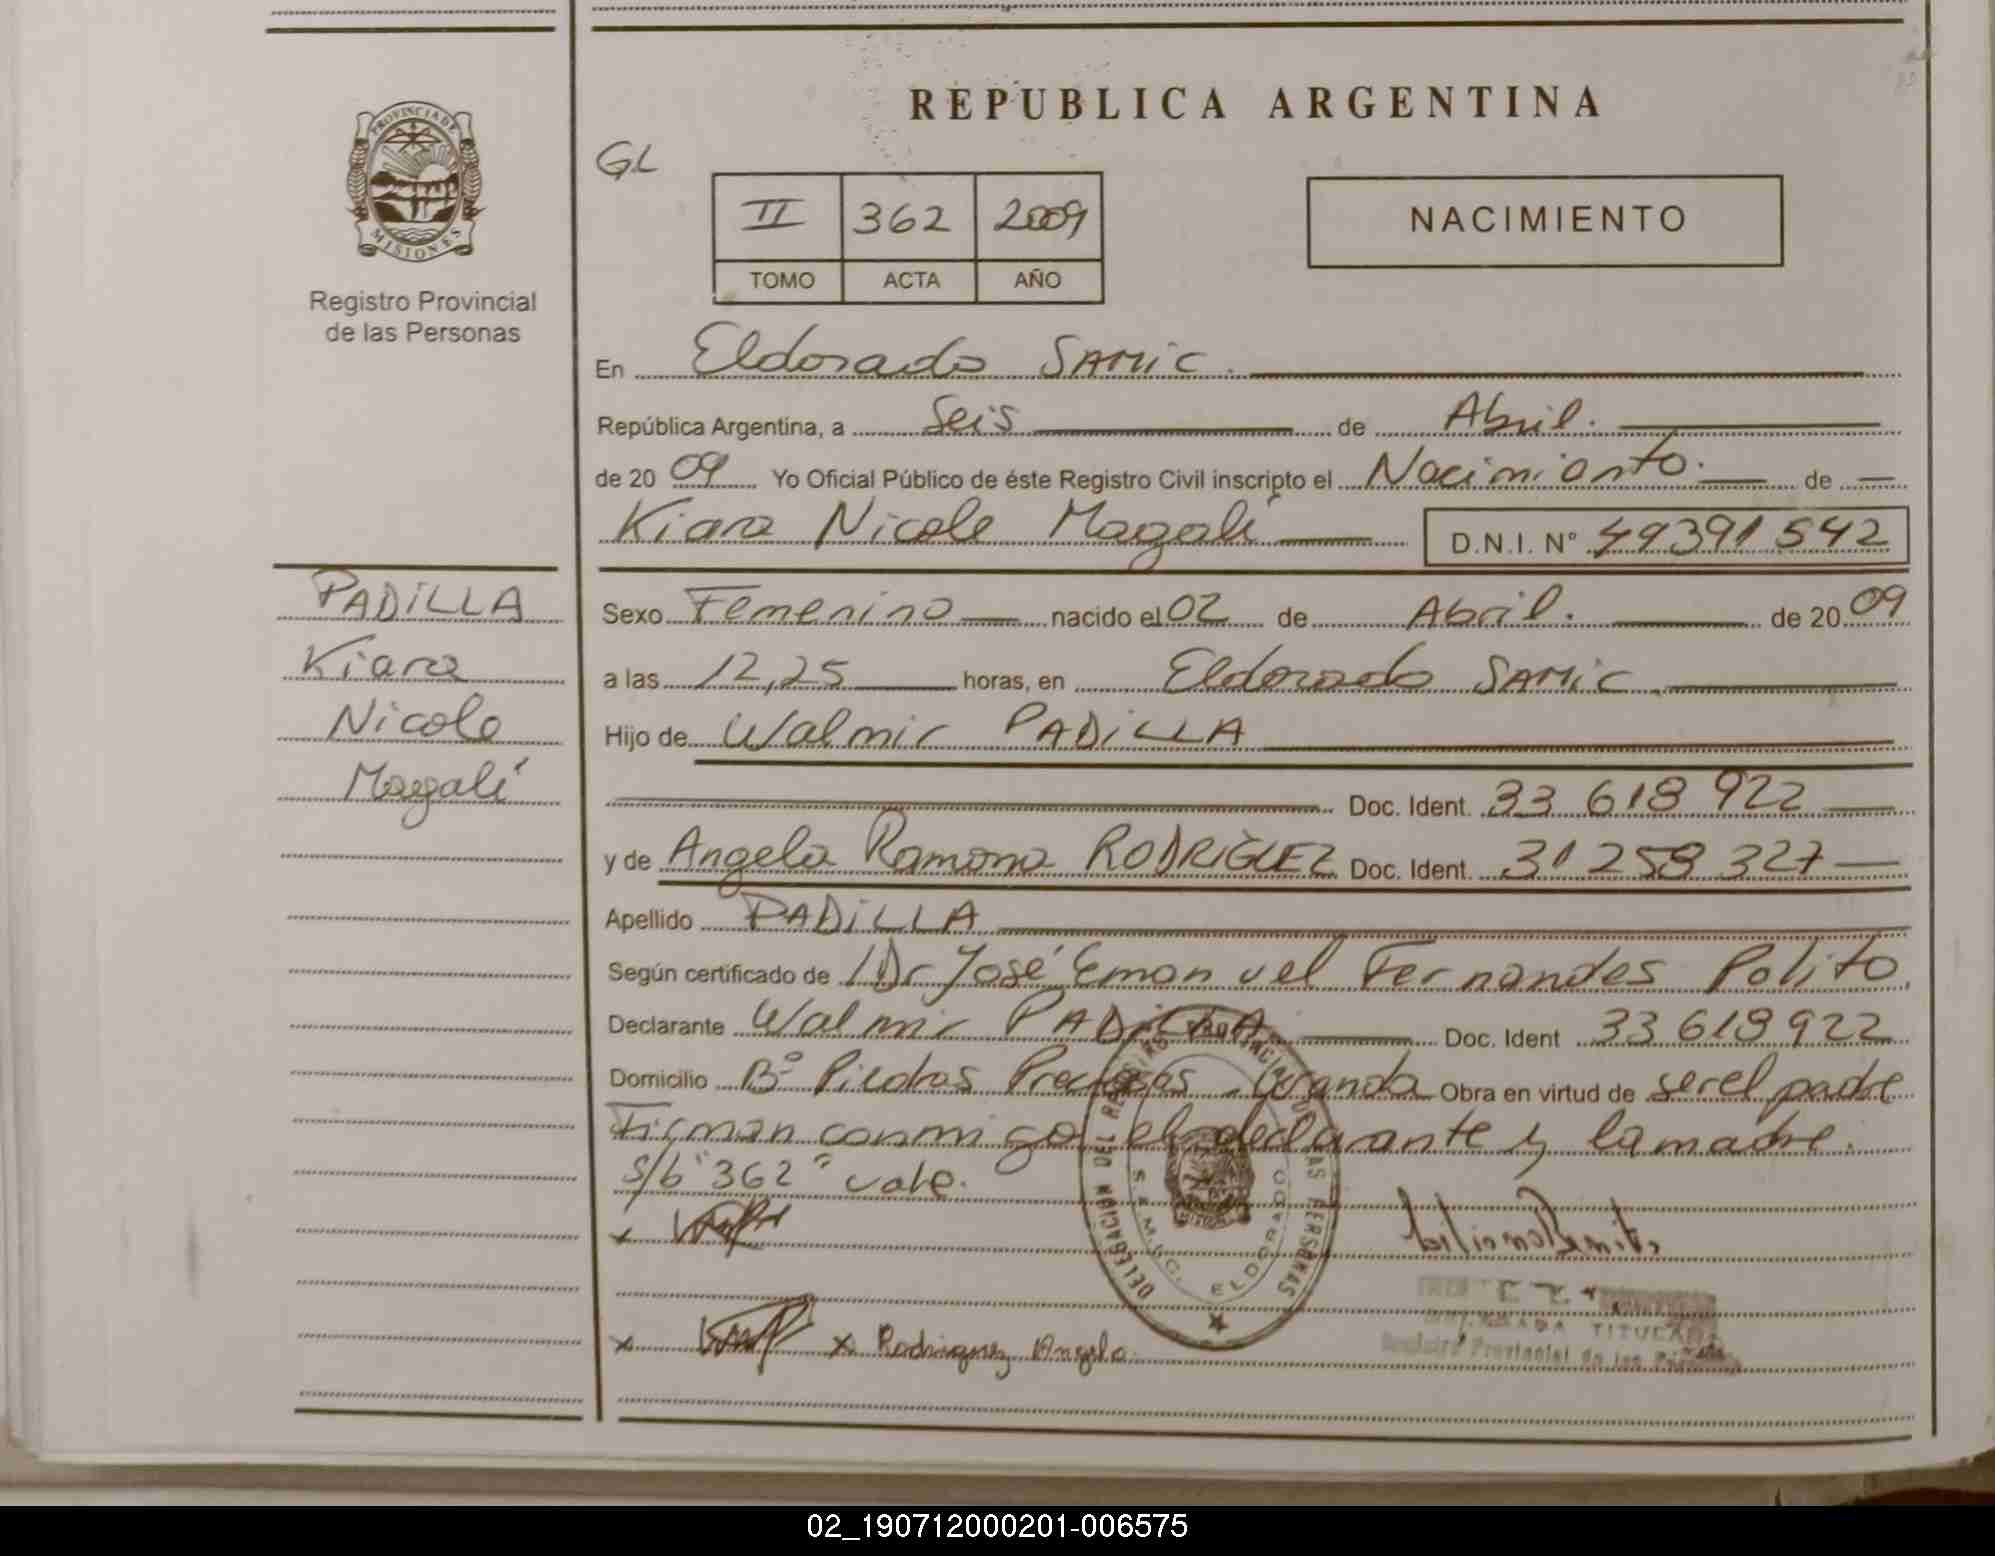 REPUBLICA ARGENTINA
PROVINCIA DE
MISIONES
Registro Provincial
de las Personas
GL
II 362 2009
TOMO ACTA AÑO
NACIMIENTO
En Eldorado SAMIC.
República Argentina, a Seis de Abril.
de 2009 Yo Oficial Público de éste Registro Civil inscripto el Nacimiento. de
Kiara Nicole Magalí D.N.I. N° 49391542
PADILLA
Kiara
Nicole
Magalí
Sexo Femenino nacido el 02 de Abril. de 2009
a las 12,25 horas, en Eldorado SAMIC.
Hijo de Walmir PADILLA
Doc. Ident. 33 618 922
y de Angela Ramona RODRIGUEZ Doc. Ident. 31 258 327
Apellido PADILLA
Según certificado de Dr José Emanuel Fernandes Polito
Declarante Walmir PADILLA Doc. Ident 33 618 922
Domicilio B° Piedras Preciosas - Wanda Obra en virtud de ser el padre
Firman conmigo el declarante y la madre.
S/b "362" vale.
DELEGACION DEL REGISTRO PROVINCIAL DE LAS PERSONAS
S.A.M.I.C. ELDORADO
x
x x Rodriguez Angela.
TITULAR
Registro Provincial de las
02_190712000201-006575